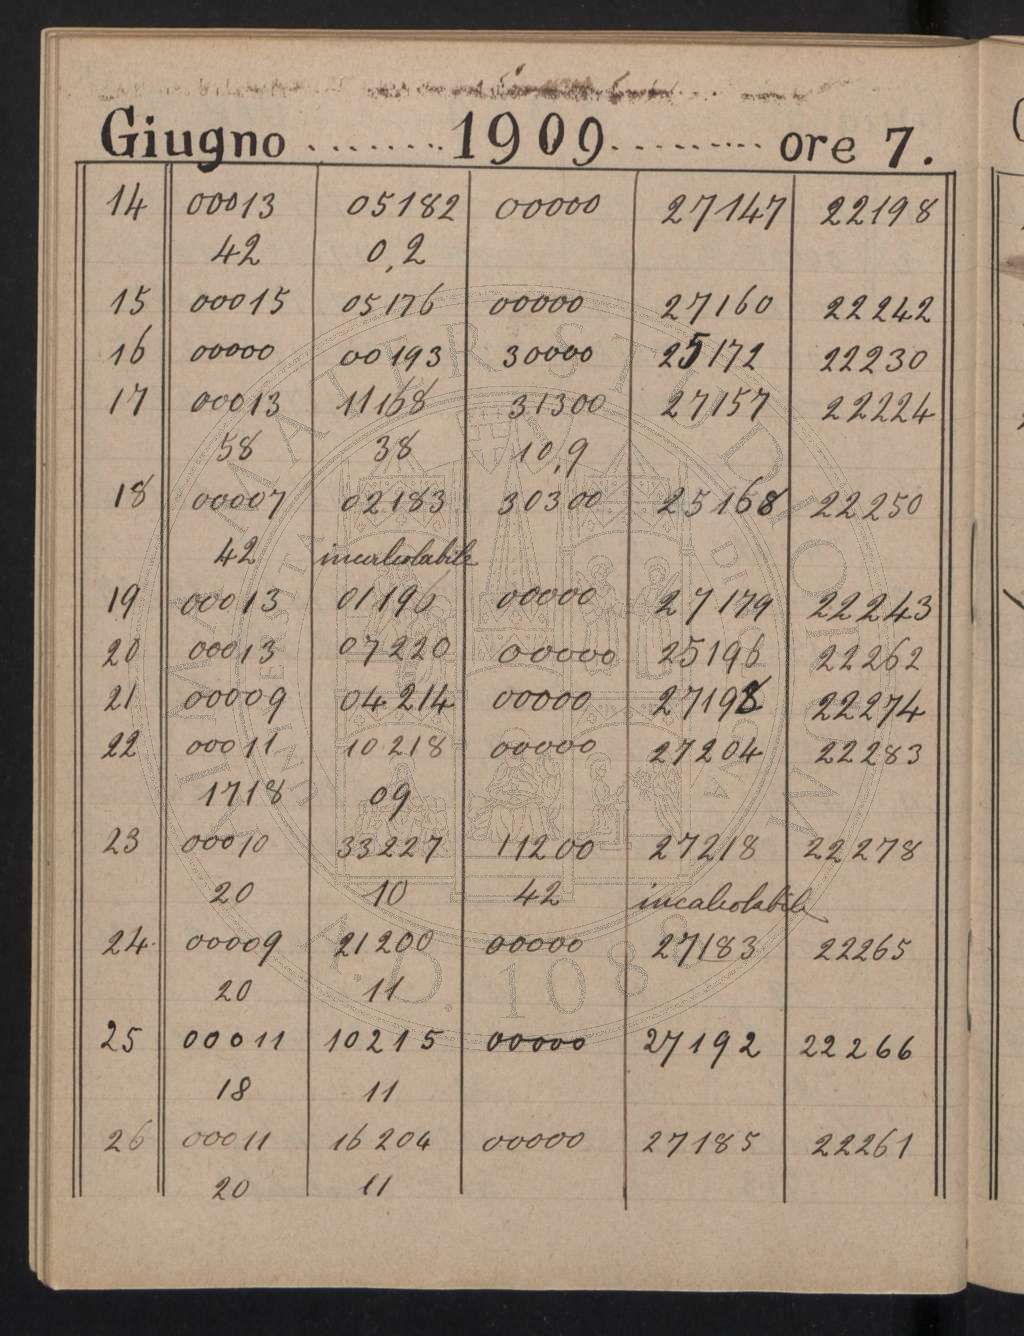 Giugno ........ 1909 ......... ore 7.
14 00013 05182 00000 27147 22198
42 0,2
15 00015 05176 00000 27160 22242
16 00000 00193 30000 25172 22230
17 00013 11168 31300 27157 22224
58 38 10,9
18 00007 02183 30300 25168 22250
42 incalcolabile
19 00013 01196 00000 27179 22243
20 00013 07220 00000 25196 22262
21 00009 04214 00000 27198 22274
22 00011 10218 00000 27204 22283
1718 09
23 00010 33227 11200 27218 22278
20 10 42 incalcolabile
24. 00009 21200 00000 27183 22265
20 11
25 00011 10215 00000 27192 22266
18 11
26 00011 16204 00000 27185 22261
20 11
ALMA MATER STUDIORUM
A.D. 1088